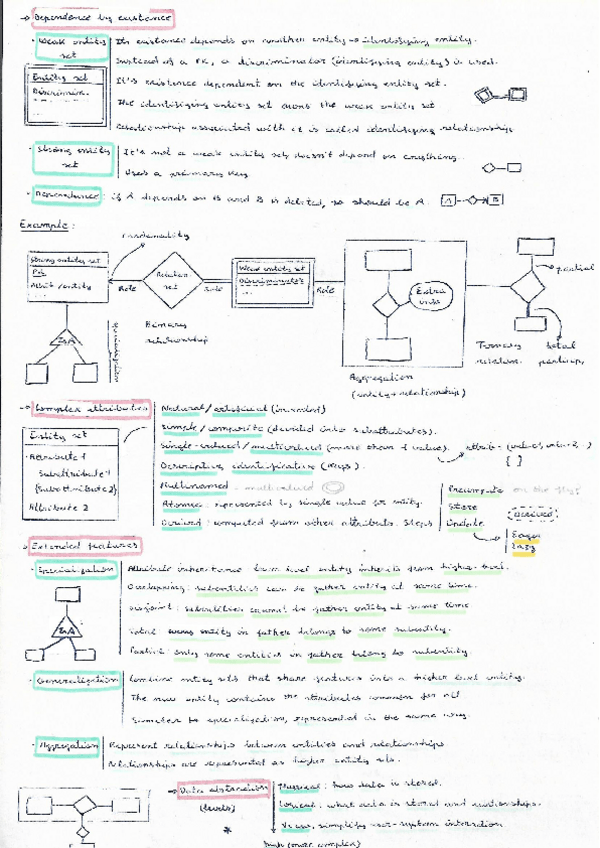 → Dependence by existence
· Weak entity set
Its existence depends on another entity → identifying entity.
Instead of a PK, a discriminator (identifying entity) is used.
It's existence dependent on the identifying entity set.
The identifying entity set owns the weak entity set
Relationship associated with it is called identifying relationship
Entity set
Discrimin.
· Strong entity set
It's not a weak entity set, doesn't depend on anything.
Uses a primary key
· Dependence: if A depends on B and B is deleted, so should be A.
A
B
Example:
cardinality
Strong entity set
PK
Attrib /entity
...
Role
Relation set
Role
Weak entity set
Discriminator
...
Role
Extra info
partial
ISA
Binary relationship
Ternary relation.
total particip.
Aggregation
(entity + relationship)
→ Complex attributes
Natural/artificial (invented)
Simple/composite (divided into subattributes).
Single-valued/multivalued (more than 1 value).
{ }
Descriptive, identificative (keys).
Entity set
Attribute 1
Subattribute 1
{Subattribute 2}
Attribute 2
Atomic: represented by single value for entity.
Derived: computed from other attributes. Steps
Precompute on the fly?
Store
Update
Derived
Eager
Lazy
→ Extended features
· Specialization
Attribute inheritance: lower level entity inherits from higher-level.
Overlapping: subentities can be father entity at same time.
Disjoint: subentities cannot be father entity at same time
Total: every entity in father belongs to some subentity.
Partial: only some entities in father belong to subentity
ISA
· Generalization
Combine entity sets that share features into a higher level entity.
The new entity contains the attributes common for all
Similar to specialization, represented in the same way.
· Aggregation
Represent relationships between entities and relationships
Relationships are represented as higher entity sets.
→ Data abstraction
(levels)
*
Physical: how data is stored.
Logical: what data is stored and relationships.
View: simplify user-system interaction
(more complex)